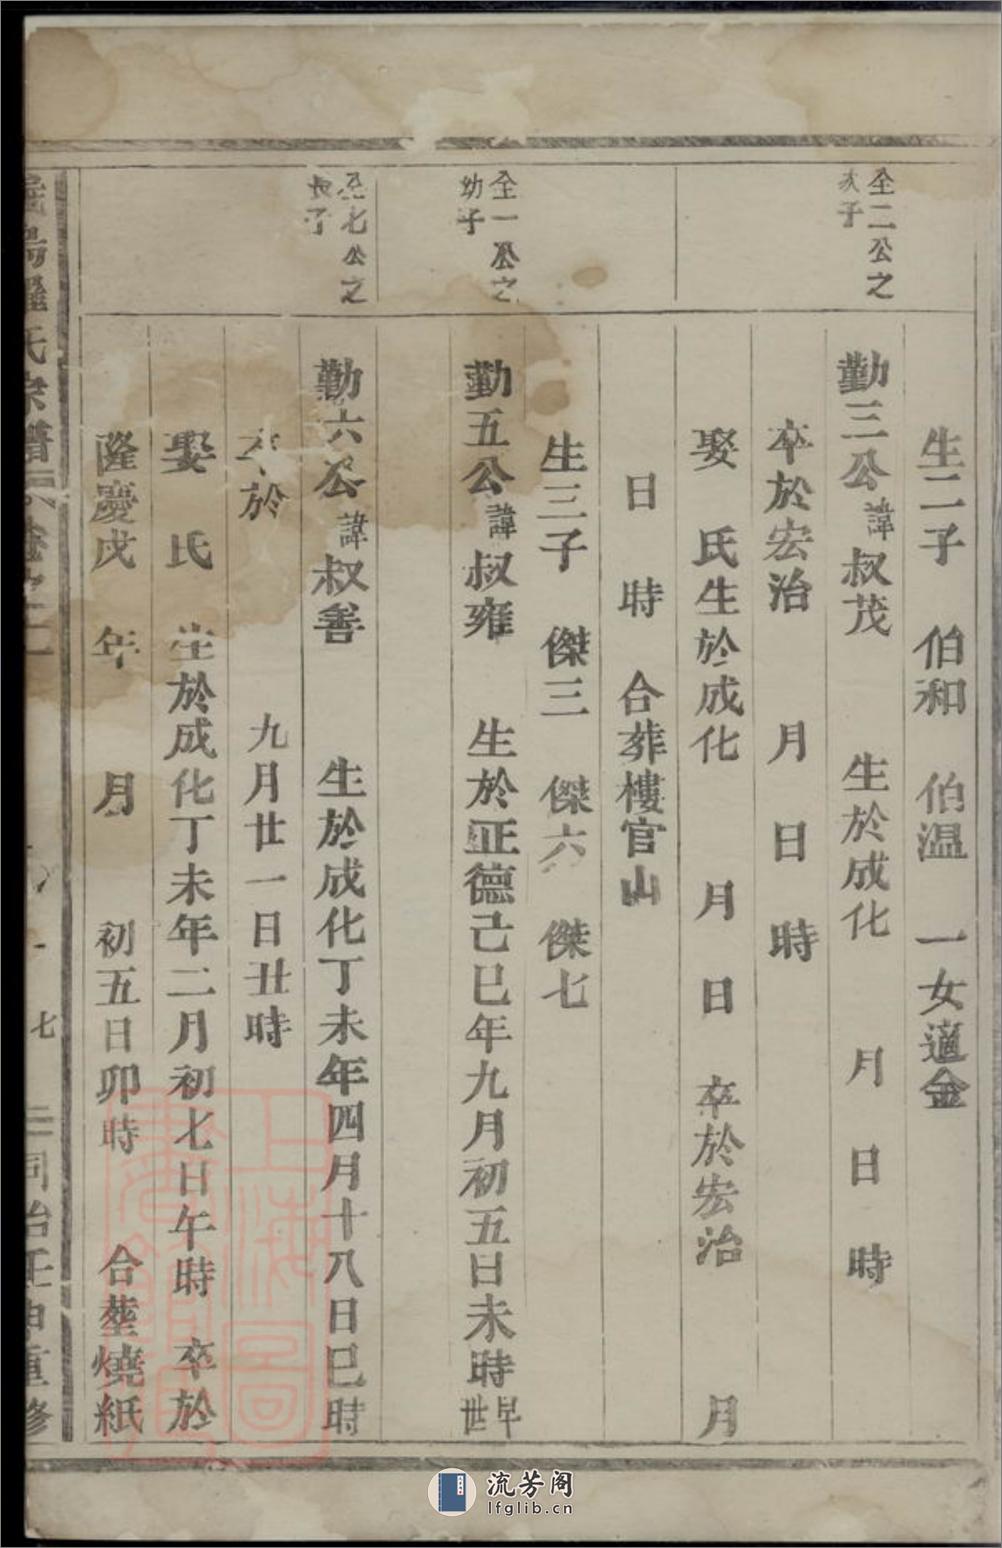 生二子 伯和 伯温 一女適金
仝二公之
次子
勤三公諱叔茂 生於成化 月日時
卒於宏治 月日時
娶 氏生於成化 月日 卒於宏治 月
日時 合葬樓官山
生三子 傑三 傑六 傑七
仝一公之
幼子
勤五公諱叔雍 生於正德己巳年九月初五日未時早世
仝七公之
長子
勤六公諱叔善 生於成化丁未年四月十八日巳時
卒於 九月廿一日丑時
娶 氏 生於成化丁未年二月初七日午時 卒於
隆慶戊 年 月 初五日卯時 合塟燒紙
羅氏宗譜
七
同治壬申重修
上海圖書館藏
流芳阁
lfglib.cn